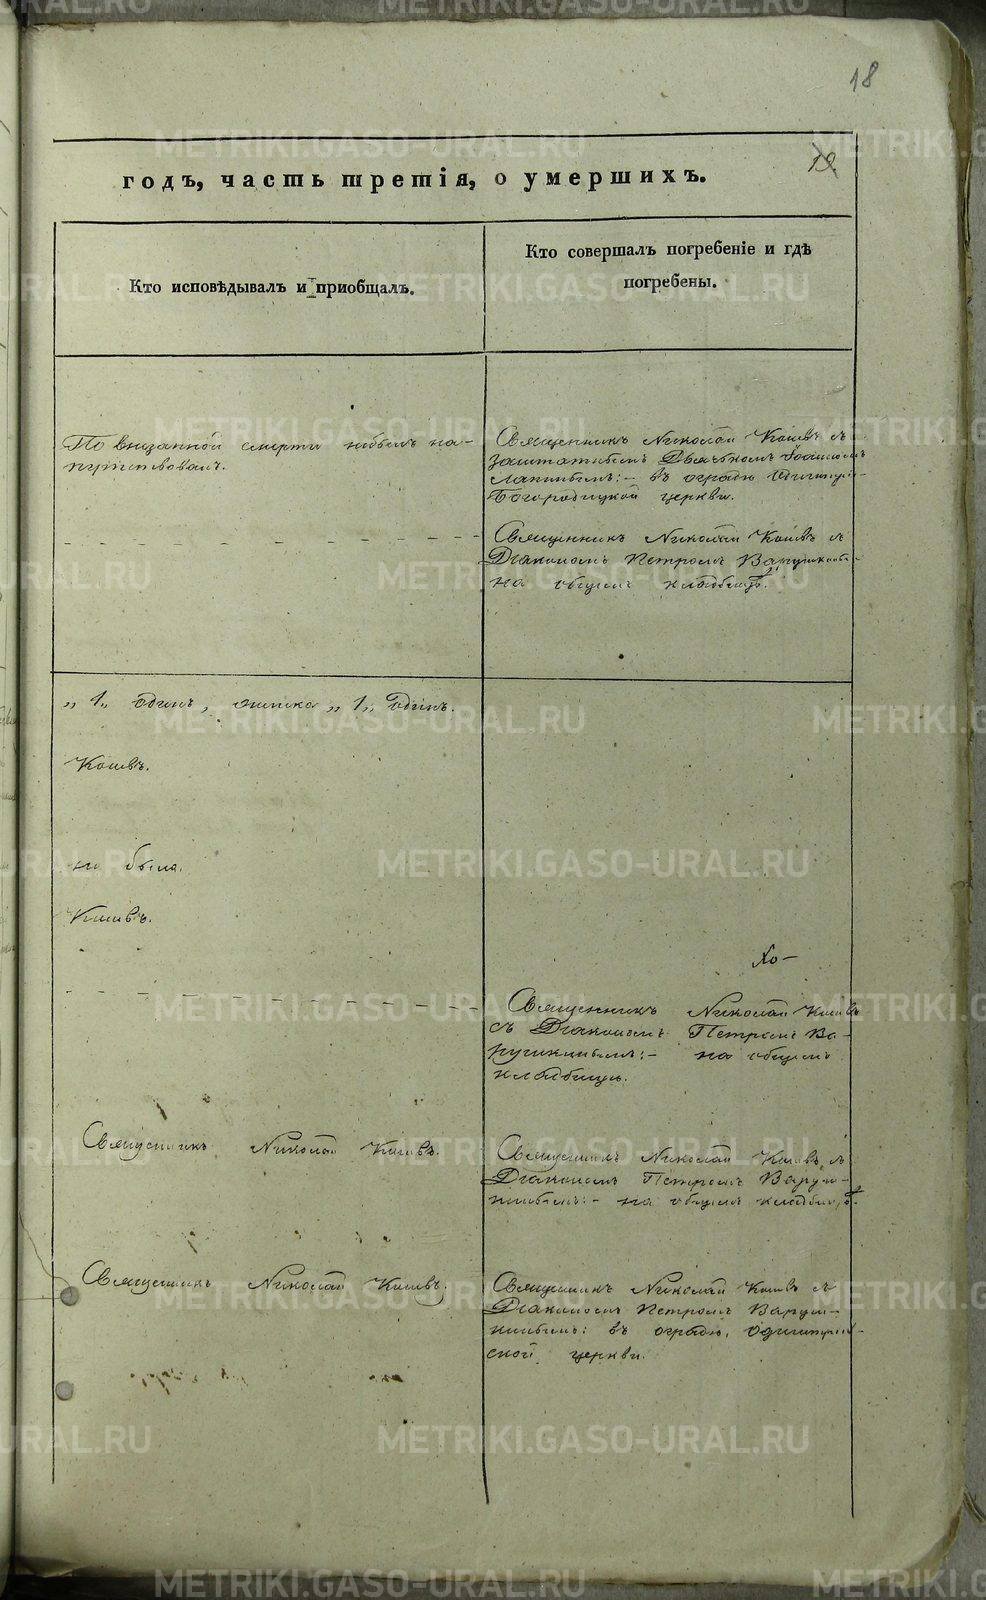 18
19.
годъ, часть третія, о умершихъ.
Кто исповѣдывалъ и пріобщалъ.
Кто совершалъ погребеніе и гдѣ
погребены.
По внезапной смерти небылъ на-
путствованъ.
Священникъ Николай с
заштатнымъ Дьячкомъ
въ оградѣ
Богородицкой церкви.
Священникъ Николай с
Діакономъ Петромъ
на общемъ кладбищѣ.
„1„ одинъ, „1„ одинъ.
не была.
Хо-
Священникъ Николай
съ Діакономъ Петромъ Ва-
рушкинымъ:- на общемъ
кладбищѣ.
Священникъ Николай
Священникъ Николай с
Діакономъ Петромъ Варуш-
кинымъ:- на общемъ кладбищѣ.
Священникъ Николай
Священникъ Николай с
Діакономъ Петромъ Варуш-
кинымъ: въ оградѣ, Одигитріев-
ской церкви.
METRIKI.GASO-URAL.RU